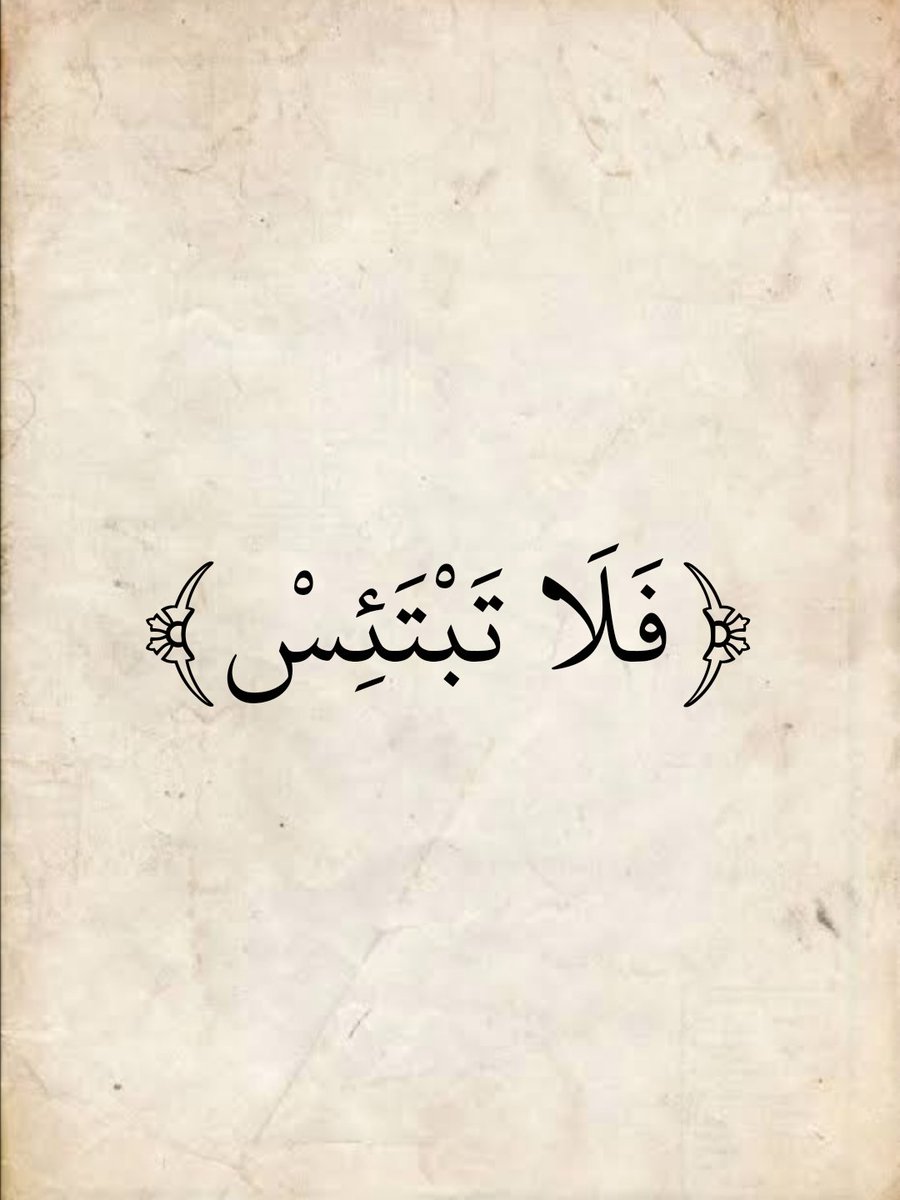 ﴿فَلَا تَبْتَئِسْ﴾